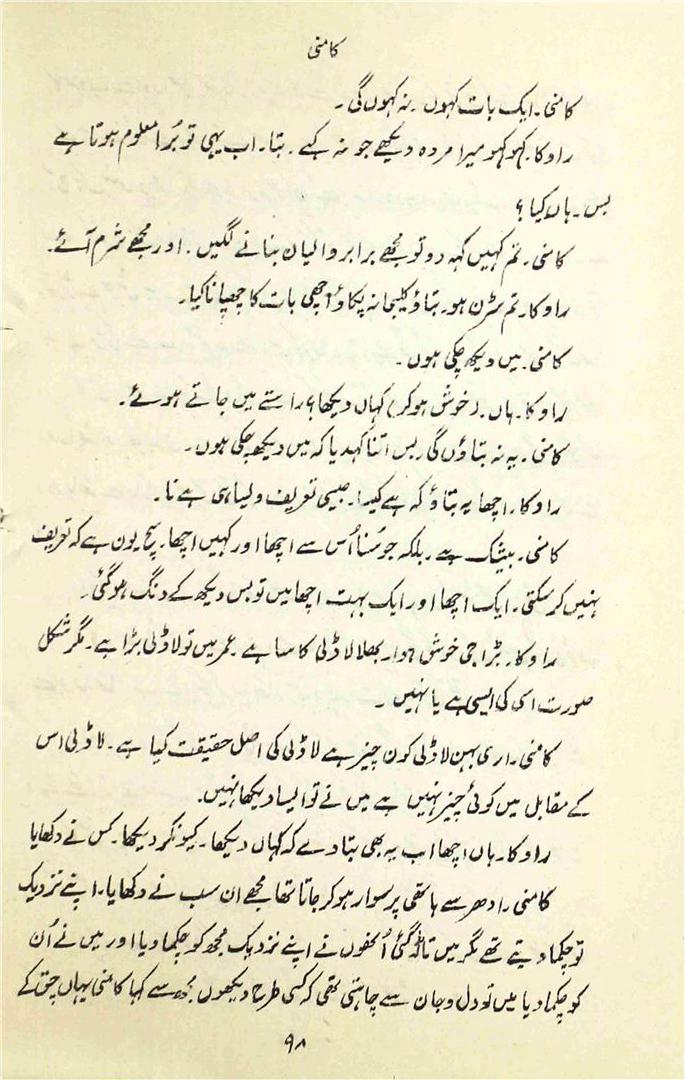 کامنی
کامنی۔ ایک بات کہوں۔ نہ کہوں گی۔
راوکا۔ کہو کہو میرا مردہ دیکھے جو نہ کہے۔ بتا۔ اب یہی تو بُرا معلوم ہوتا ہے
بس۔ ہاں کیا؟
کامنی۔ تم کہیں کہہ دو تو مجھے برابر والیان بنانے لگیں۔ اور مجھے شرم آئے۔
راوکا۔ تم سڑن ہو۔ بتاؤ کلیجا نہ پکاؤ اچھی بات کا چھپانا کیا۔
کامنی۔ میں دیکھ چکی ہوں۔
راوکا۔ ہاں۔ (خوش ہوکر) کہاں دیکھا؟ راستے میں جاتے ہوئے۔
کامنی۔ یہ نہ بتاؤں گی۔ بس اتنا کہدیا کہ میں دیکھ چکی ہوں۔
راوکا۔ اچھا یہ بتاؤ کہ ہے کیسا۔ جیسی تعریف ویسا ہی ہے نا۔
کامنی۔ بیشک ہے۔ بلکہ جو سُنا اُس سے اچھا اور کہیں اچھا۔ سچ یون ہے کہ تعریف
نہیں کرسکتی۔ ایک اچھا اور ایک بہت اچھا میں تو بس دیکھ کے دنگ ہو گئی۔
راوکا۔ بڑا جی خوش ہوا۔ بھلا لاڈلی کا سا ہے۔ عمر میں تو لاڈلی بڑا ہے۔ مگر شکل
صورت اسی کی ایسی ہے یا نہیں۔
کامنی۔ اری بہن لاڈلی کون چیز ہے لاڈلی کی اصل حقیقت کیا ہے۔ لاڈلی اس
کے مقابل میں کوئی چیز نہیں ہے میں نے تو ایسا دیکھا نہیں۔
راوکا۔ ہاں اچھا اب یہ بھی بتا دے کہ کہاں دیکھا۔ کیونکر دیکھا۔ کس نے دکھایا
کامنی۔ ادھر سے ہاتھی پر سوار ہوکر جاتا تھا مجھے ان سب نے دکھایا۔ اپنے نزدیک
تو چکما دیتے تھے مگر میں تاڑ گئی اُنھوں نے اپنے نزدیک مجھ کو چکما دیا اور میں نے اُن
کو چکما دیا میں تو دل و جان سے چاہتی تھی کہ کسی طرح دیکھوں مجھ سے کہا کامنی یہاں چق کے
۹۸